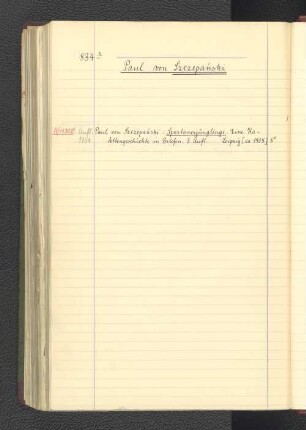 834ᵃ
Paul von Szczepański
Aufl. Paul von Szczepański: Spartanerjünglinge. Eine Ka-
dettengeschichte in Briefen. 8. Aufl. Leipzig [ca 1915] 8°